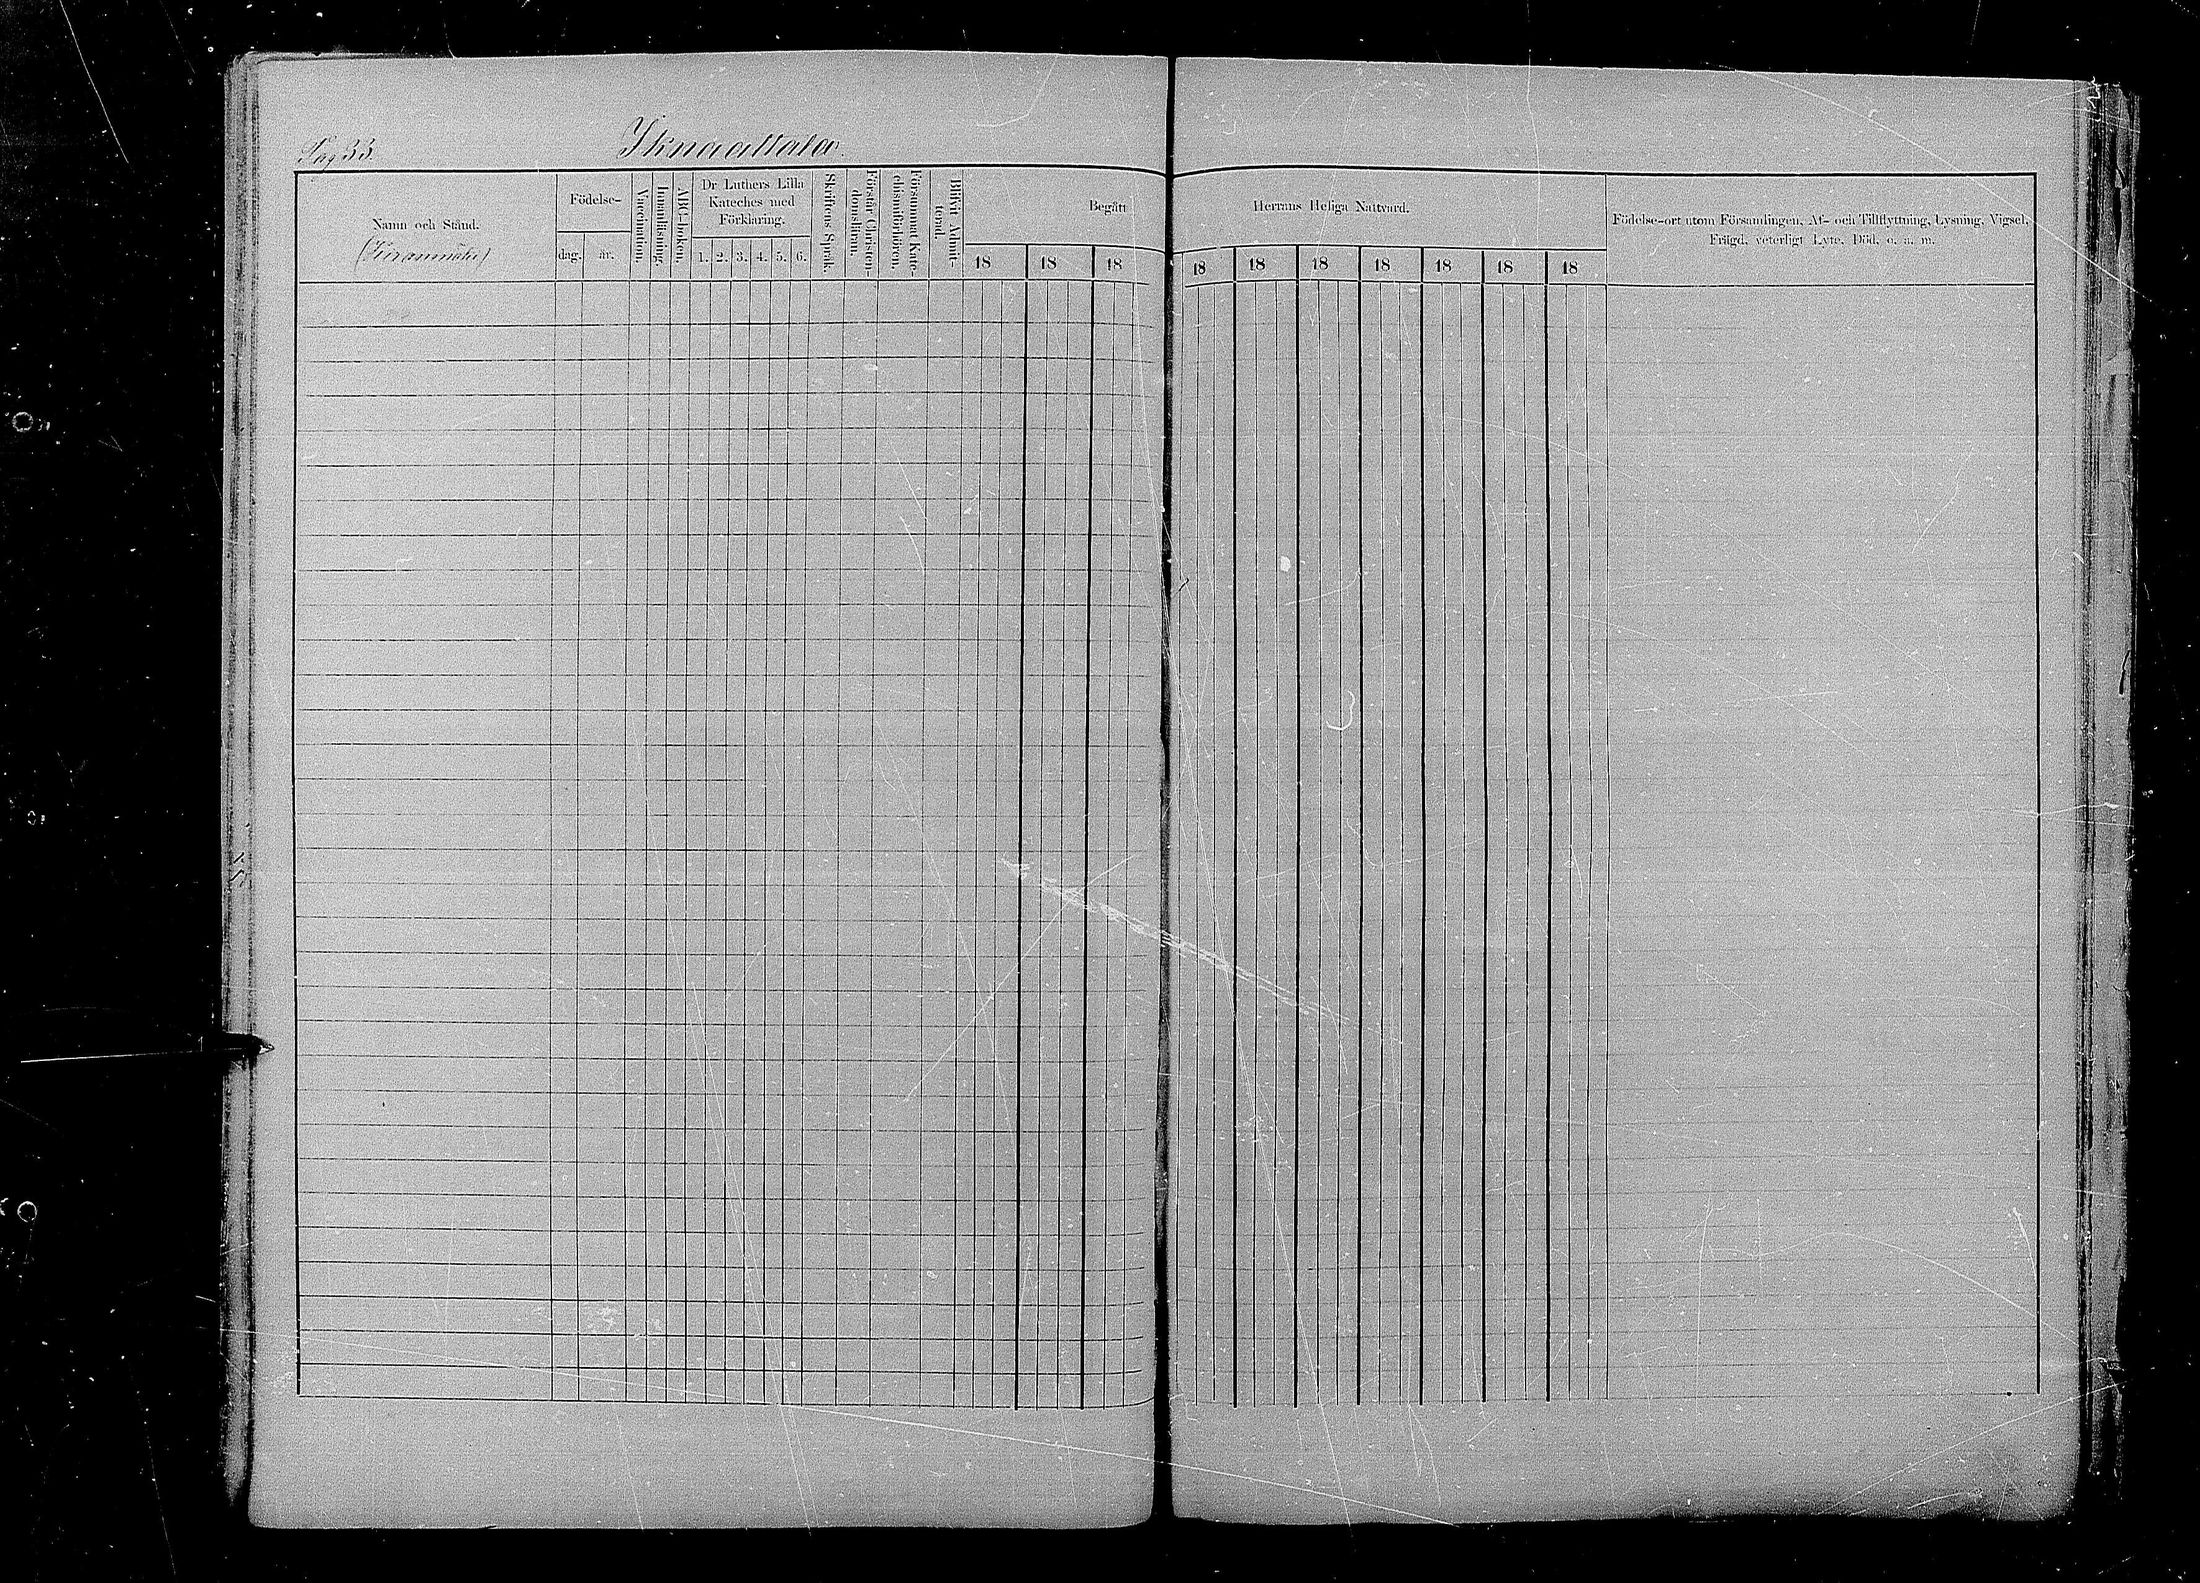 Pag 33.
Namn och Stånd.
Födelse-
dag.
år.
Vaccination.
Innanläsning.
ABC-boken.
Dr Luthers Lilla
Kateches med
Förklaring.
1. 2. 3. 4. 5. 6.
Skriftens Språk.
Förstår Christen-
domsläran.
Försummat Kate-
chisandförhören.
Blifvit Admit-
terad.
Begått
18 18 18
Herrans Heliga Nattvard.
18 18 18 18 18 18 18
Födelse-ort utom Församlingen, Af- och Tillflyttning, Lysning, Vigsel,
Frägd, veterligt Lyte, Död, o. a. m.